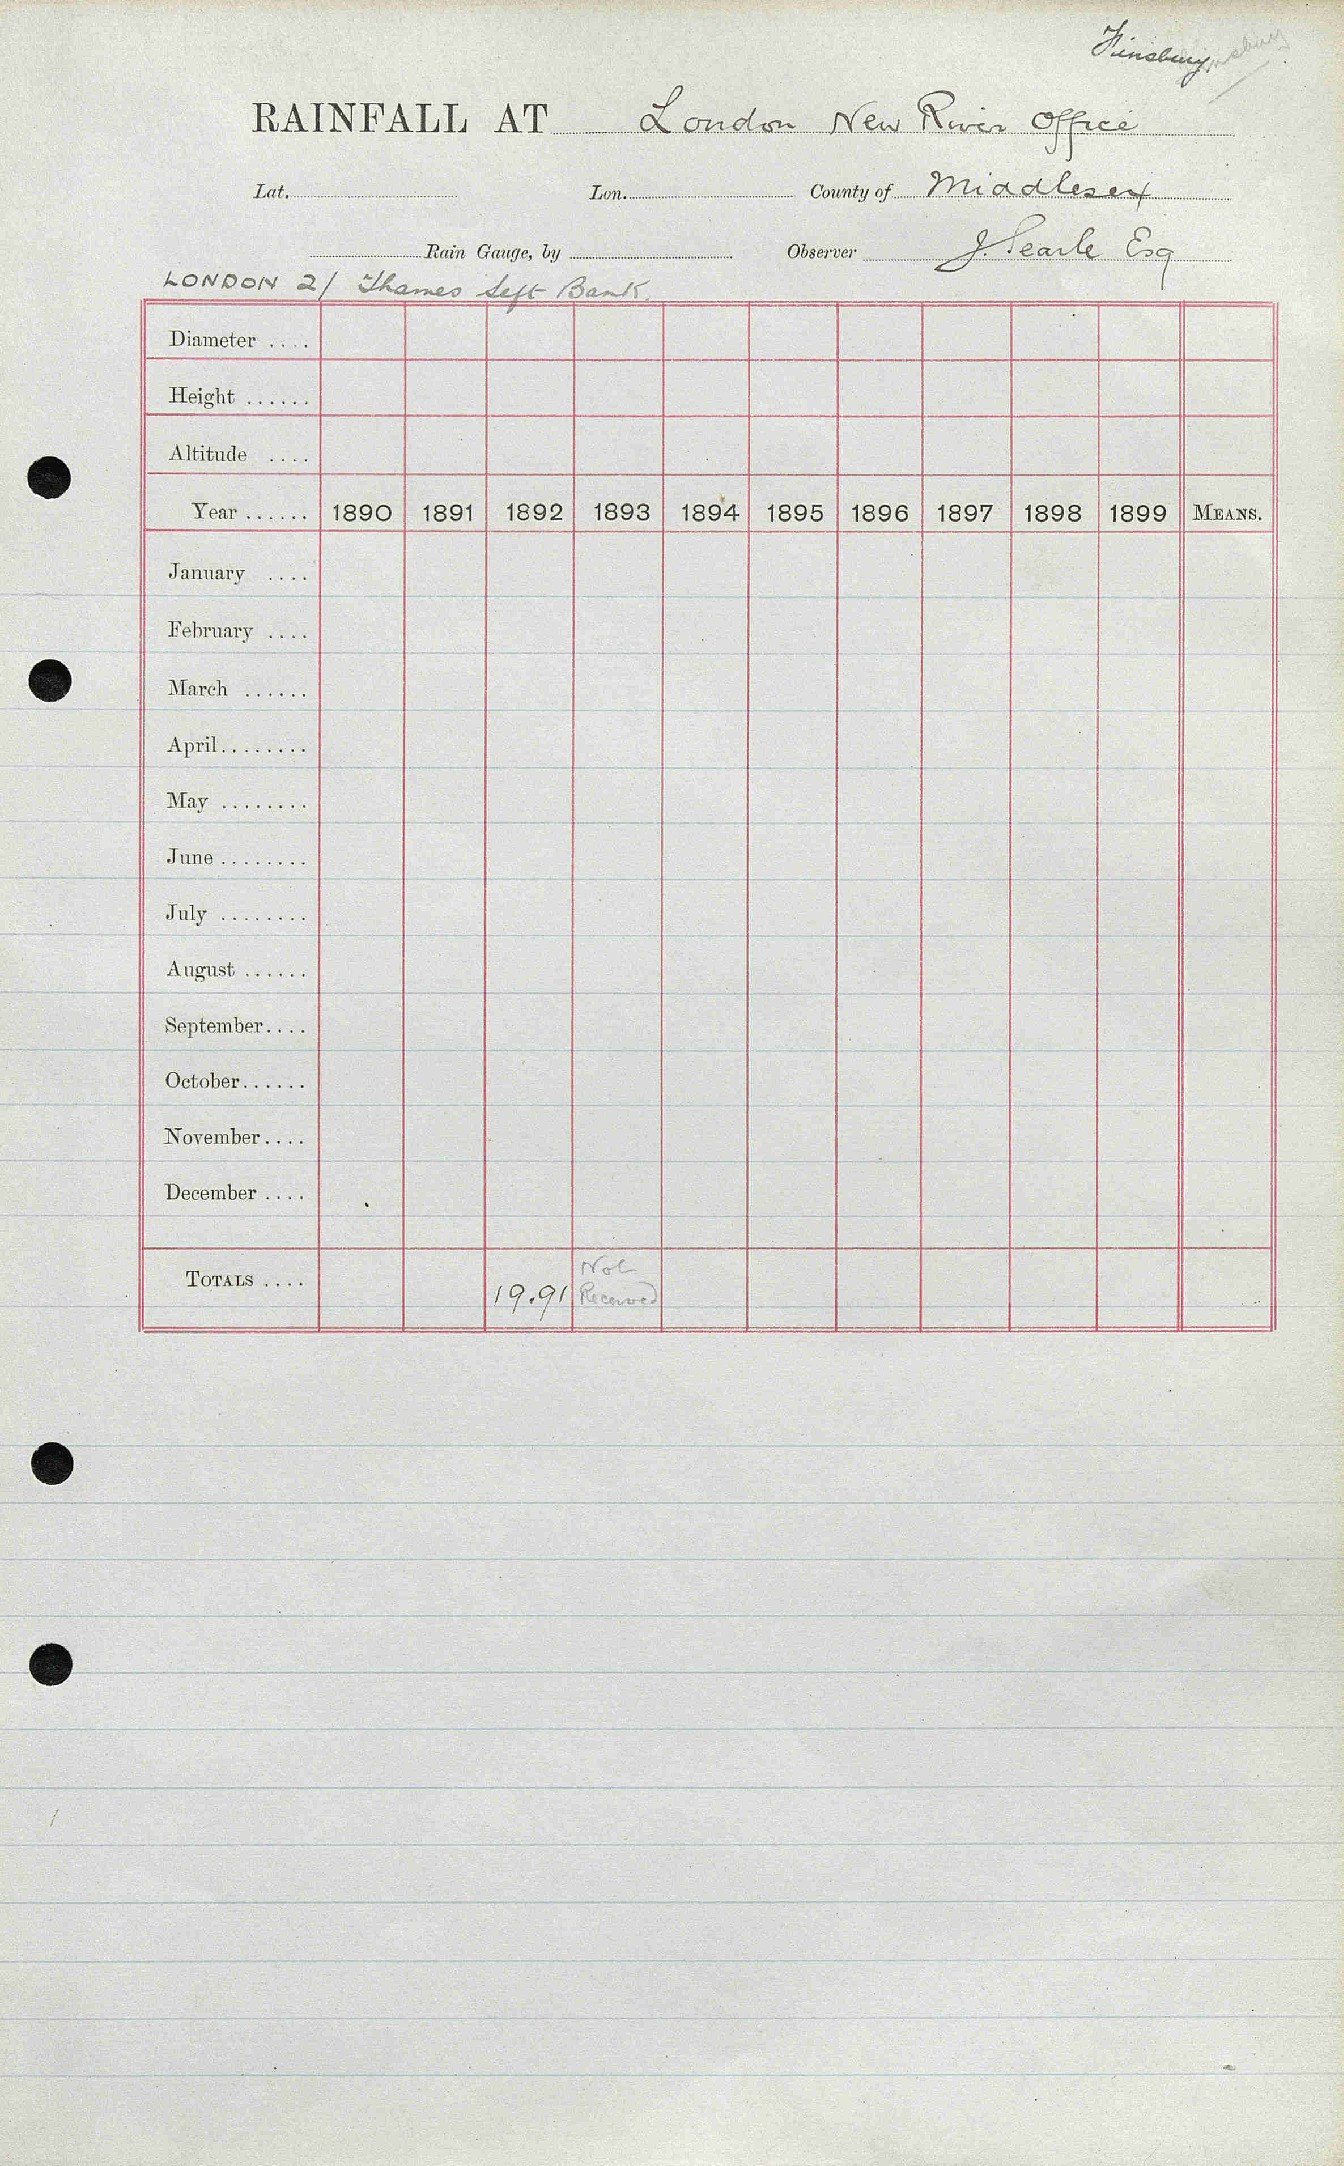 Finsbury Finsbury
RAINFALL AT London New River Office
Lat. Lon. County of Middlesex
Rain Gauge, by Observer J. Searle Esq
LONDON 2/ Thames Left Bank.
Diameter ....
Height ......
Altitude ....
Year ...... 1890 1891 1892 1893 1894 1895 1896 1897 1898 1899 MEANS.
January ....
February ....
March ......
April ........
May ........
June ........
July ........
August ......
September ....
October ......
November ....
December ....
TOTALS .... 19.91 Not Received